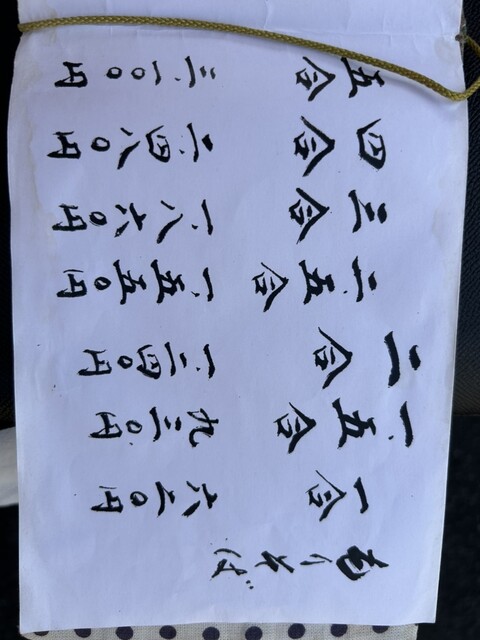 もりそば
一合 六二〇円
一、五合 九三〇円
二合 一、二四〇円
二、五合 一、五五〇円
三合 一、八六〇円
四合 二、四八〇円
五合 三、一〇〇円